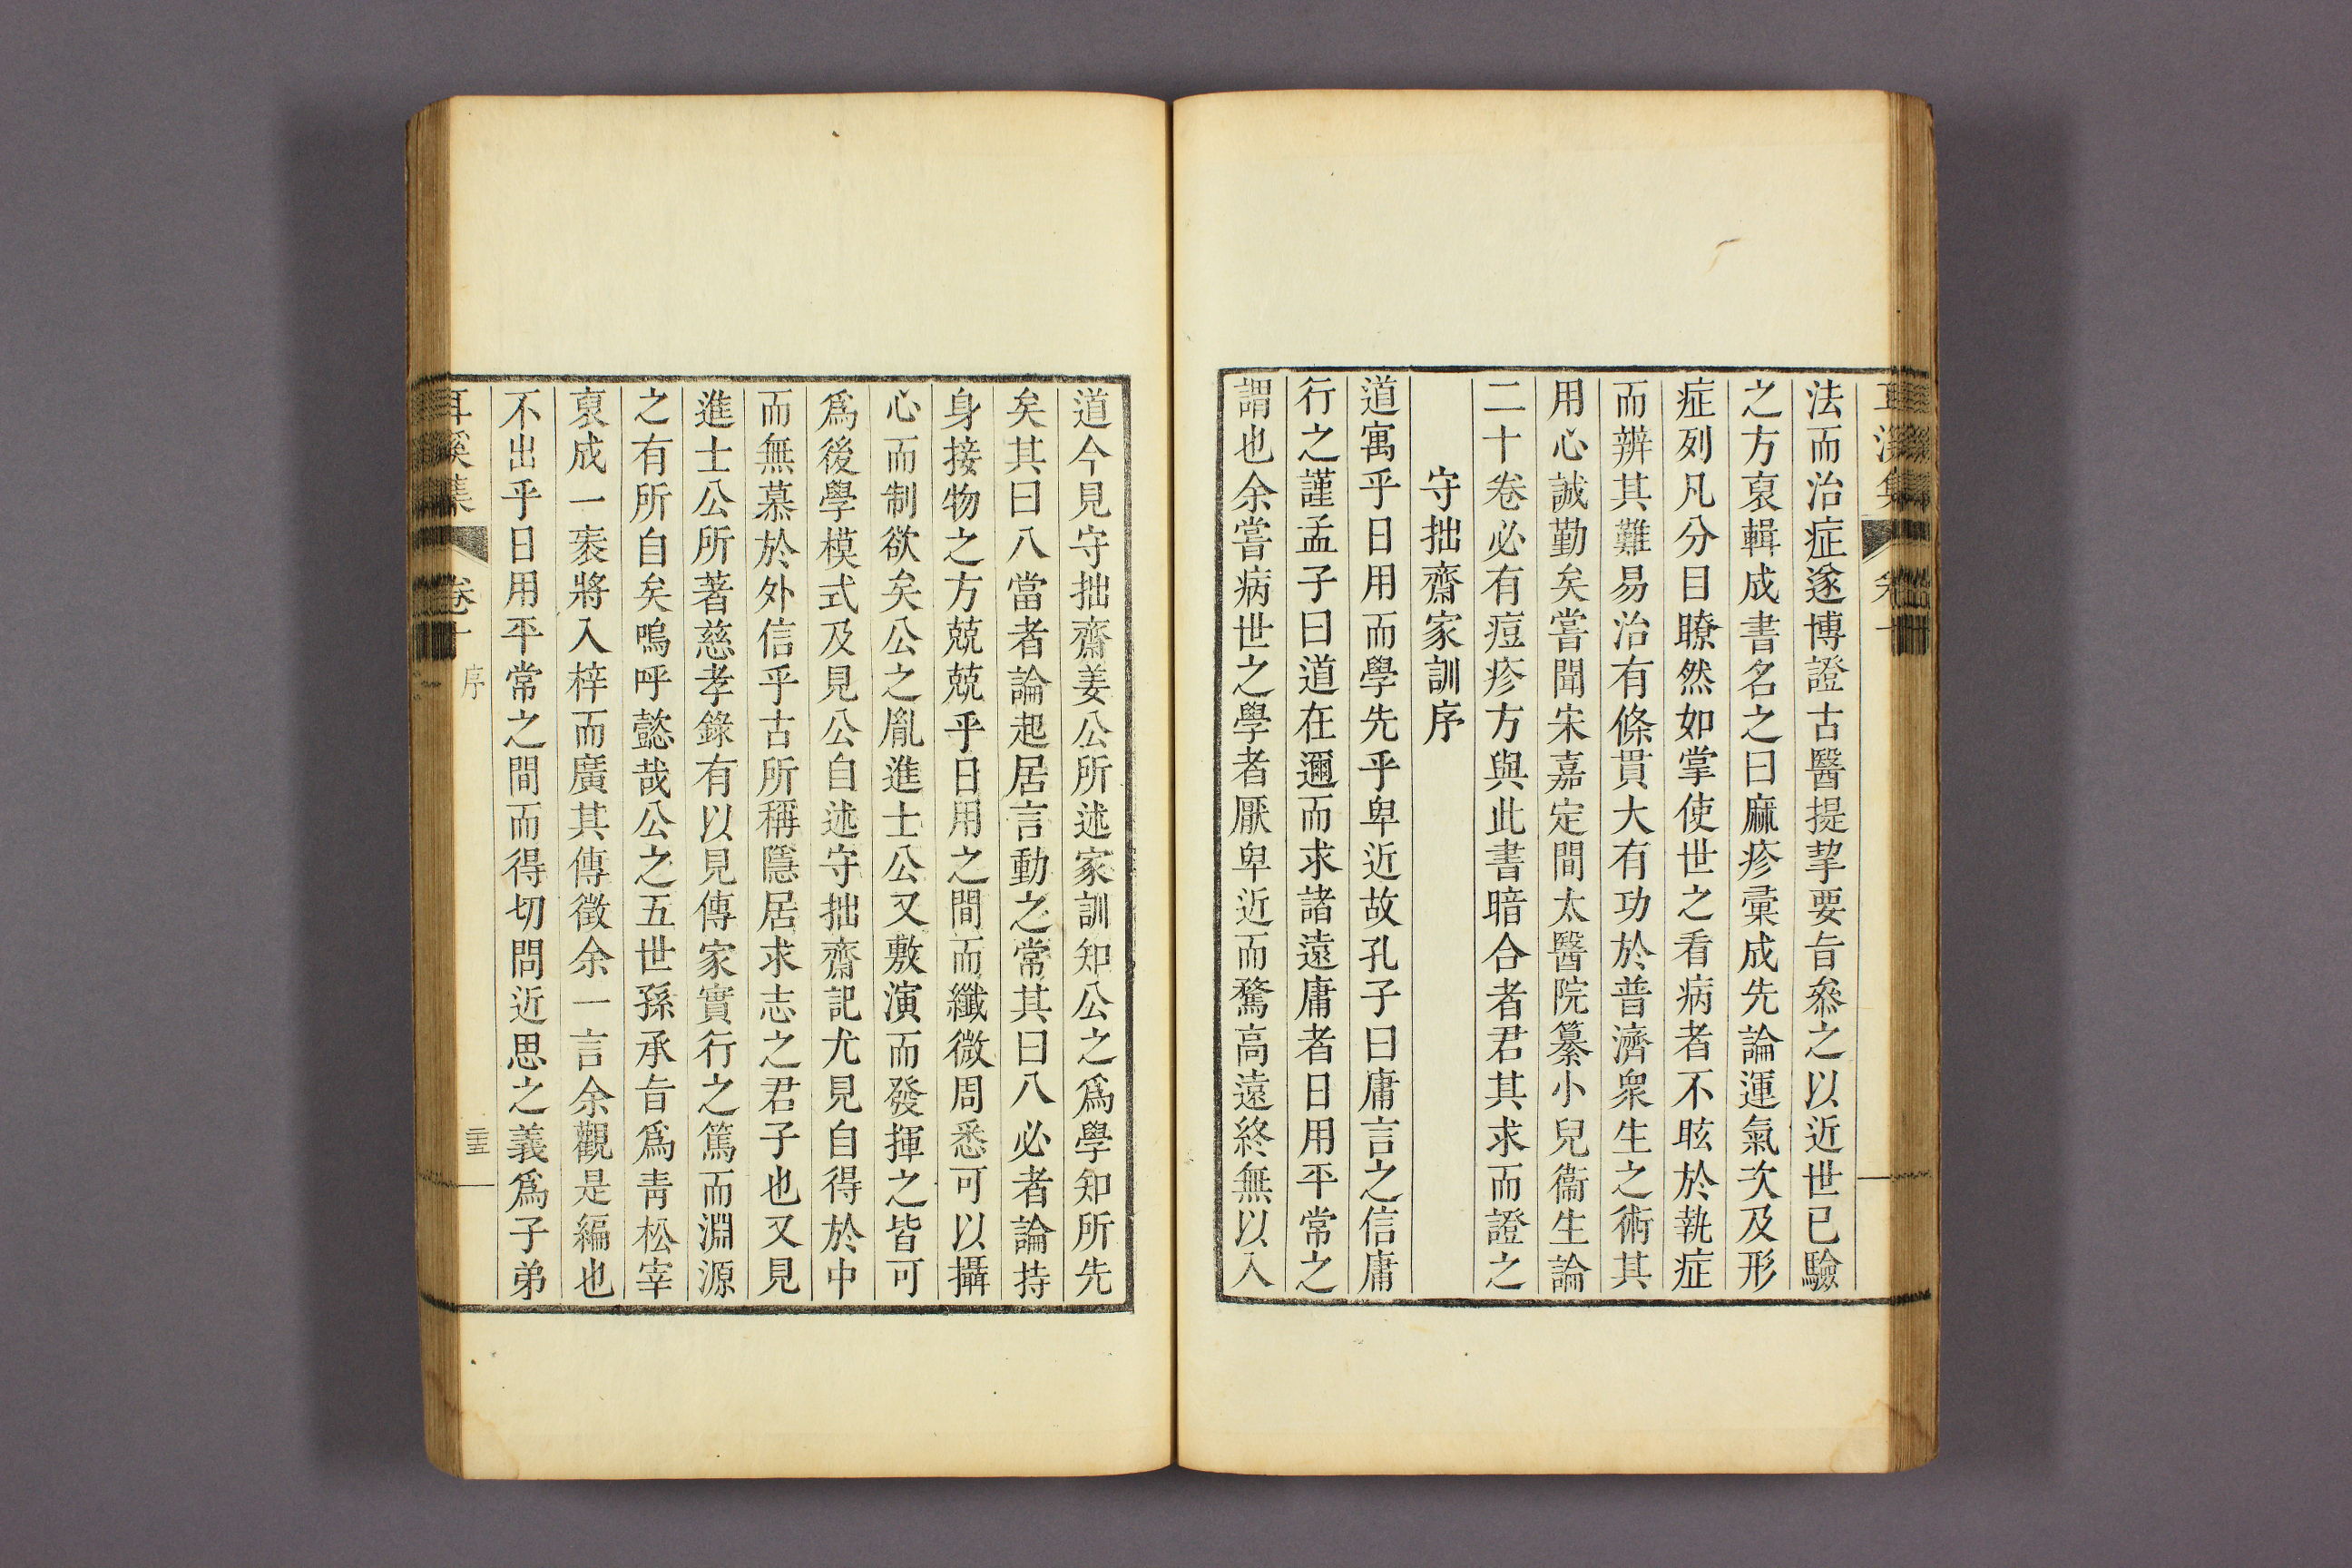 法而治症遂博證古醫提挈要旨叅之以近世已驗
之方裒輯成書名之曰麻疹彙成先論運氣次及形
症列凡分目瞭然如掌使世之看病者不眩於執症
而辨其難易治有條貫大有功於普濟衆生之術其
用心誠勤矣嘗聞宋嘉定間太醫院纂小兒衞生論
二十卷必有痘疹方與此書暗合者君其求而證之
守拙齋家訓序
道寓乎日用而學先乎卑近故孔子曰庸言之信庸
行之謹孟子曰道在邇而求諸遠庸者日用平常之
謂也余嘗病世之學者厭卑近而騖高遠終無以入
道今見守拙齋姜公所述家訓知公之爲學知所先
矣其曰八當者論起居言動之常其曰八必者論持
身接物之方兢兢乎日用之間而纖微周悉可以攝
心而制欲矣公之胤進士公又敷演而發揮之皆可
爲後學模式及見公自述守拙齋記尤見自得於中
而無慕於外信乎古所稱隱居求志之君子也又見
進士公所著慈孝錄有以見傳家實行之篤而淵源
之有所自矣嗚呼懿哉公之五世孫承旨爲靑松宰
裒成一袠將入梓而廣其傳徵余一言余觀是編也
不出乎日用平常之間而得切問近思之義爲子弟
耳溪集 卷十 序 二十五